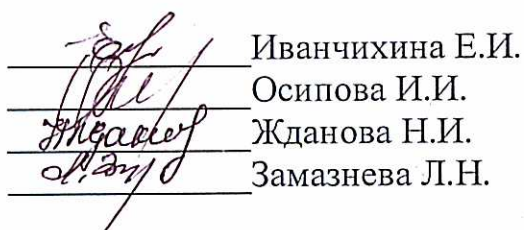 Иванчихина Е.И.
Осипова И.И.
Жданова Н.И.
Замазнева Л.Н.